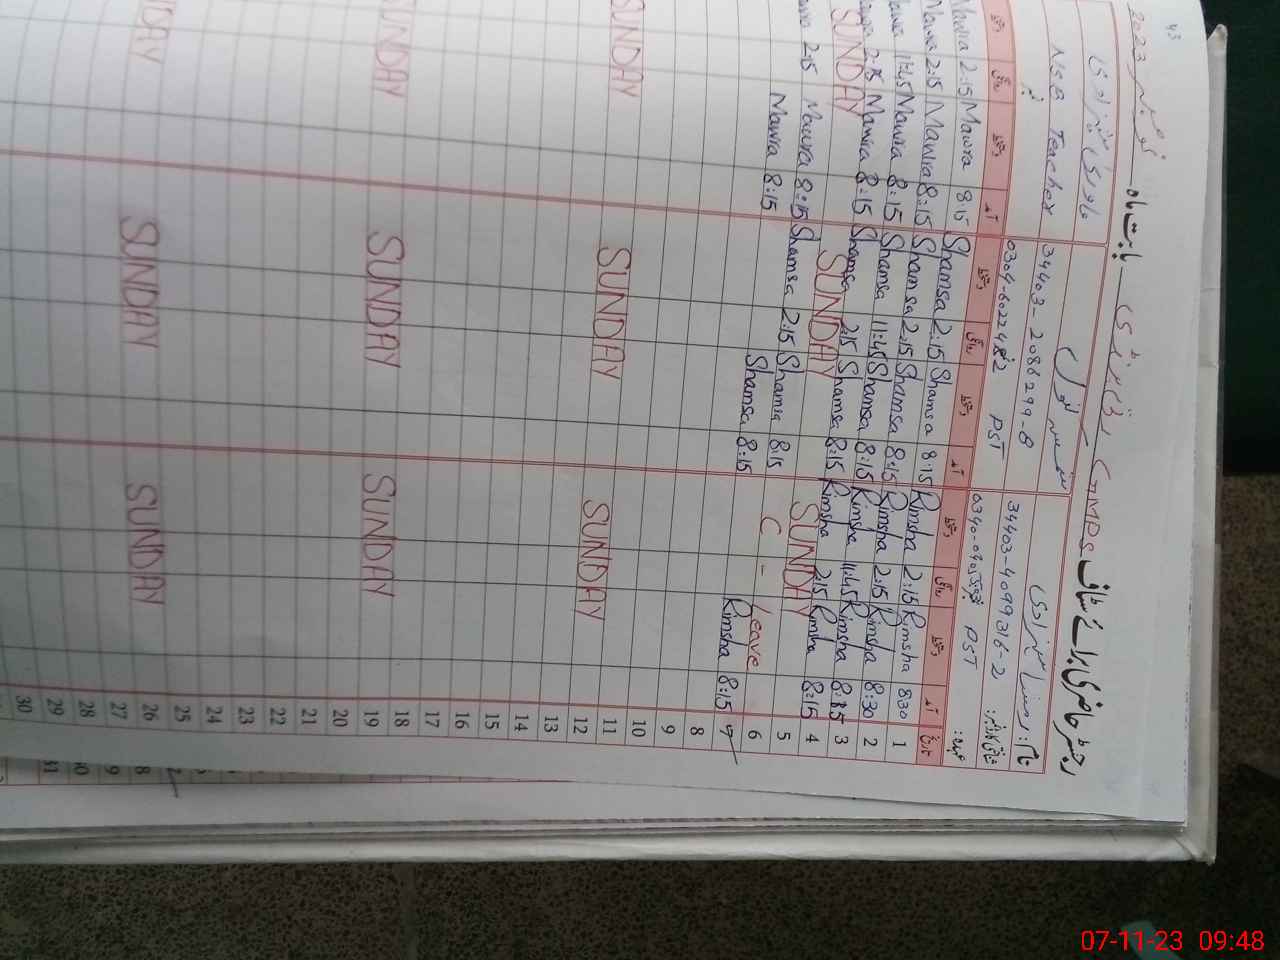 43
رجسٹر حاضری برائے سٹاف GMPS بابت ماہ نومبر 2023
نام:
شناختی کارڈ نمبر:
عہدہ:
34403-4099316-2
PST
34403-2086299-8
0304-6022482 PST
NSB Teacher
تاریخ آمد دستخط روانگی دستخط آمد دستخط روانگی دستخط آمد دستخط روانگی دستخط
1 8:30 Rimsha 2:15 Rimsha 8:15 Shamsa 2:15 Shamsa 8:15 Mawra 2:15 Mawra
2 8:30 Rimsha 2:15 Rimsha 8:15 Shamsa 2:15 Shamsa 8:15 Mawra 2:15 Mawra
3 Rimsha 11:45 Rimsha 8:15 Shamsa 11:45 Shamsa 8:15 Mawra 11:45
4 8:15 Rimsha 2:15 Rimsha 8:15 Shamsa 2:15 Shamsa 8:15 Mawra 2:15
5 SUNDAY SUNDAY SUNDAY
6 Leave C - 8:15 Shamsa 2:15 Shamsa 8:15 Mawra 2:15
7 8:15 Rimsha 8:15 Shamsa 8:15 Mawra
8
9
10
11
12 SUNDAY SUNDAY SUNDAY
13
14
15
16
17
18
19 SUNDAY SUNDAY SUNDAY
20
21
22
23
24
25
26 SUNDAY SUNDAY
27
28
29
30
07-11-23 09:48